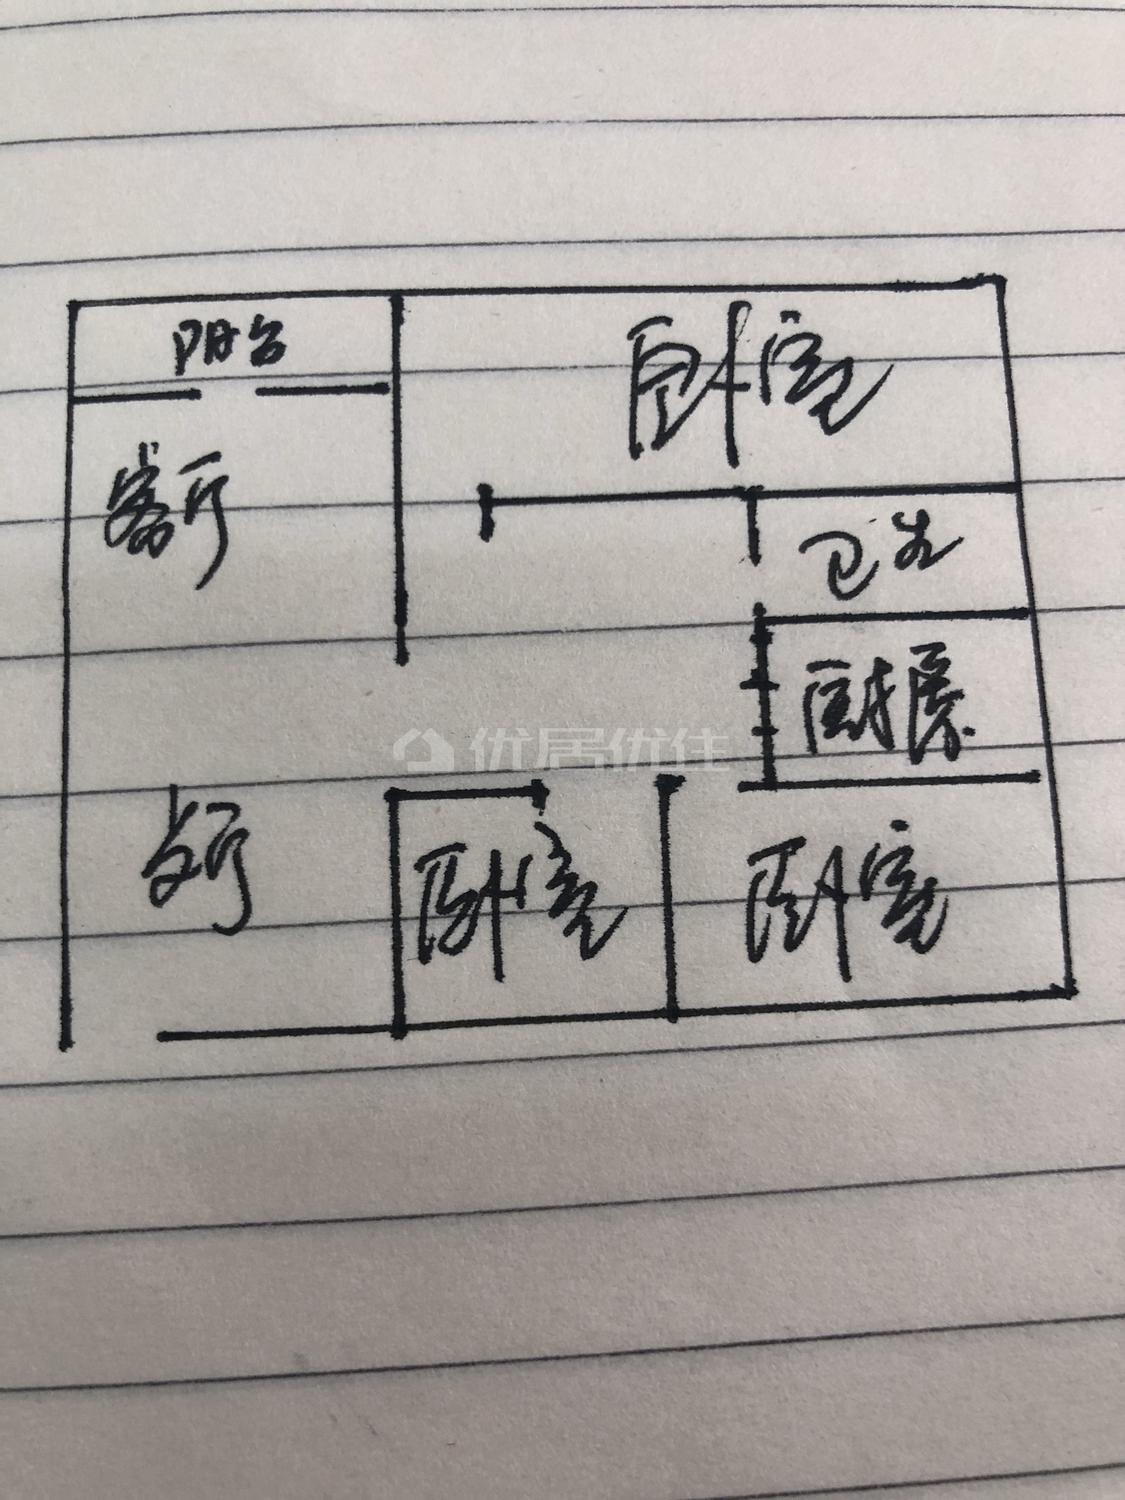 阳台
卧室
客厅
卫生
厨房
优居优住
卧室
卧室